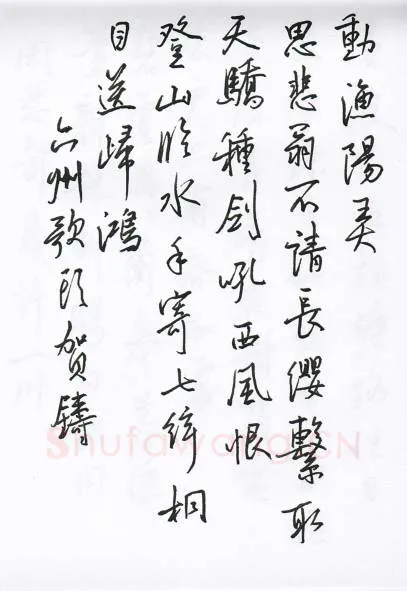 動漁陽弄
思悲翁不請長纓繫取
天驕種劍吼西風恨
登山臨水手寄七絃桐
目送歸鴻
六州歌頭賀鑄
Shufawang.CN